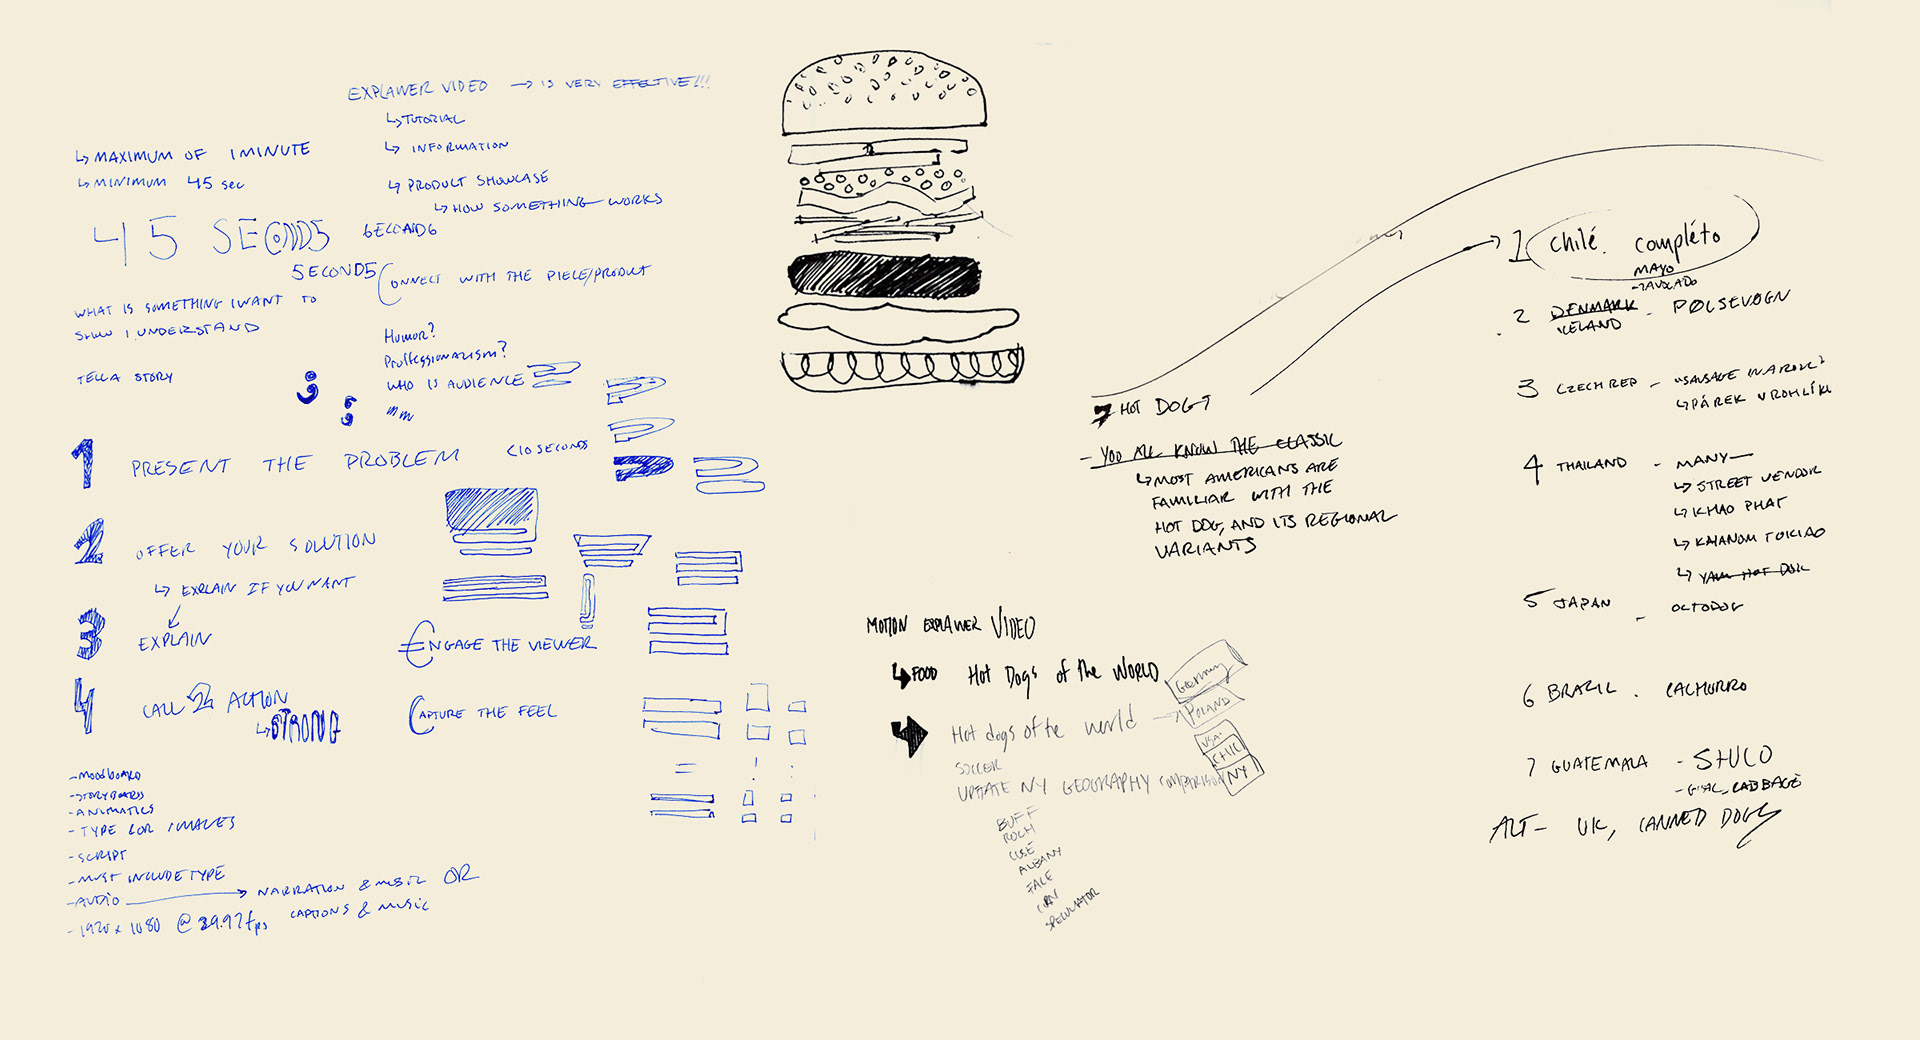 EXPLAINER VIDEO → IS VERY EFFECTIVE!!!
↳ TUTORIAL
↳ INFORMATION
↳ PRODUCT SHOWCASE
↳ HOW SOMETHING WORKS
↳ MAXIMUM OF 1 MINUTE
↳ MINIMUM 45 SEC
45 SECONDS
SECONDS
SECONDS
CONNECT WITH THE PIECE/PRODUCT
WHAT IS SOMETHING I WANT TO
SHOW / UNDERSTAND
TELL A STORY
HUMOR?
PROFFESSIONALISM?
WHO IS AUDIENCE
1 PRESENT THE PROBLEM <10 SECONDS
2 OFFER YOUR SOLUTION
↳ EXPLAIN IF YOU WANT
3 EXPLAIN
ENGAGE THE VIEWER
4 CALL 2 ACTION
↳ STRONG
CAPTURE THE FEEL
- MOODBOARD
- STORYBOARD
- ANIMATICS
- TYPE &/OR IMAGES
- SCRIPT
- MUST INCLUDE TYPE
- AUDIO → NARRATION & MUSIC OR
CAPTIONS & MUSIC
- 1920 x 1080 @ 29.97 fps
MOTION EXPLAINER VIDEO
↳ FOOD HOT DOGS OF THE WORLD
Hot dogs of the world →
Germany
POLAND
USA
CHIC
NY
SOCCER
UPSTATE NY GEOGRAPHY COMPARISON
BUFF
ROCH
CUSE
ALBANY
SPECULATOR
7 HOT DOGS
- YOU ALL KNOW THE CLASSIC
↳ MOST AMERICANS ARE
FAMILIAR WITH THE
HOT DOG, AND ITS REGIONAL
VARIANTS
1 Chilé. compléto
MAYO
→ AVOCADO
2 DENMARK - PØLSEVOGN
ICELAND
3 CZECH REP - "SAUSAGE IN A ROLL"
↳ PÁREK V ROHLÍKU
4 THAILAND - MANY—
↳ STREET VENDOR
↳ KHAO PHAT
↳ KHANOM TOKIAO
↳ YAM HOT DOK
5 JAPAN - OCTODOG
6 BRAZIL - CACHORRO
7 GUATEMALA - SHUCO
- GUAC, CABBAGE
ALT - UK, CANNED DOGS